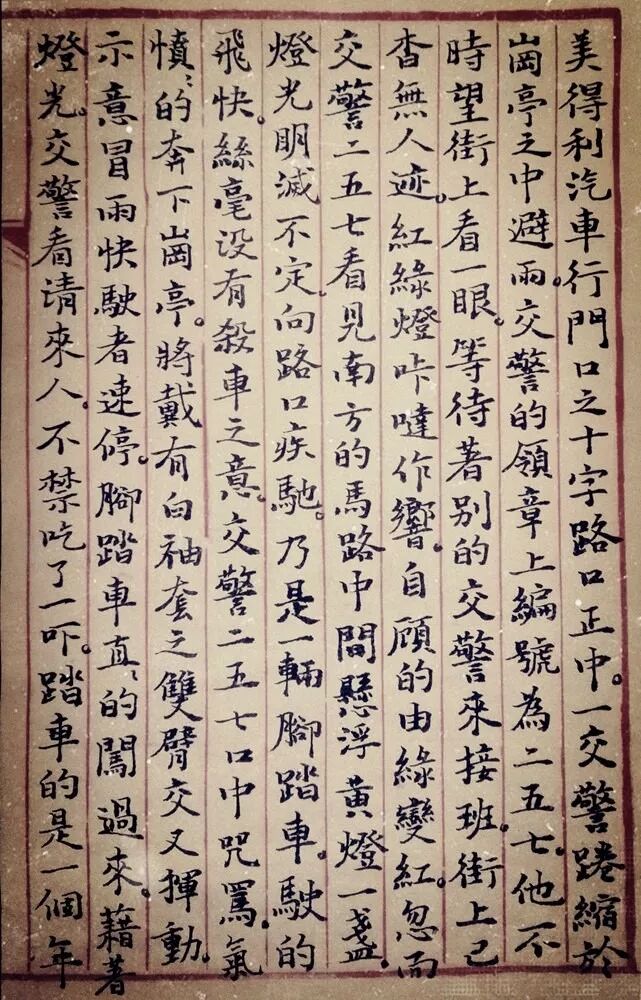 美得利汽車行門口之十字路口正中。一交警踡縮於
崗亭之中避雨。交警的領章上編號為二五七。他不
時望街上看一眼。等待著別的交警來接班。街上已
杳無人迹。紅綠燈咔噠作響。自顧的由綠變紅。忽而
交警二五七看見南方的馬路中間懸浮黃燈一盞。
燈光明滅不定。向路口疾馳。乃是一輛腳踏車。駛的
飛快。絲毫没有殺車之意。交警二五七口中咒罵。氣
憤〻的奔下崗亭。將戴有白袖套之雙臂交叉揮動。
示意冒雨快駛者速停。腳踏車直〻的闖過來。藉著
燈光。交警看清來人。不禁吃了一吓。踏車的是一個年